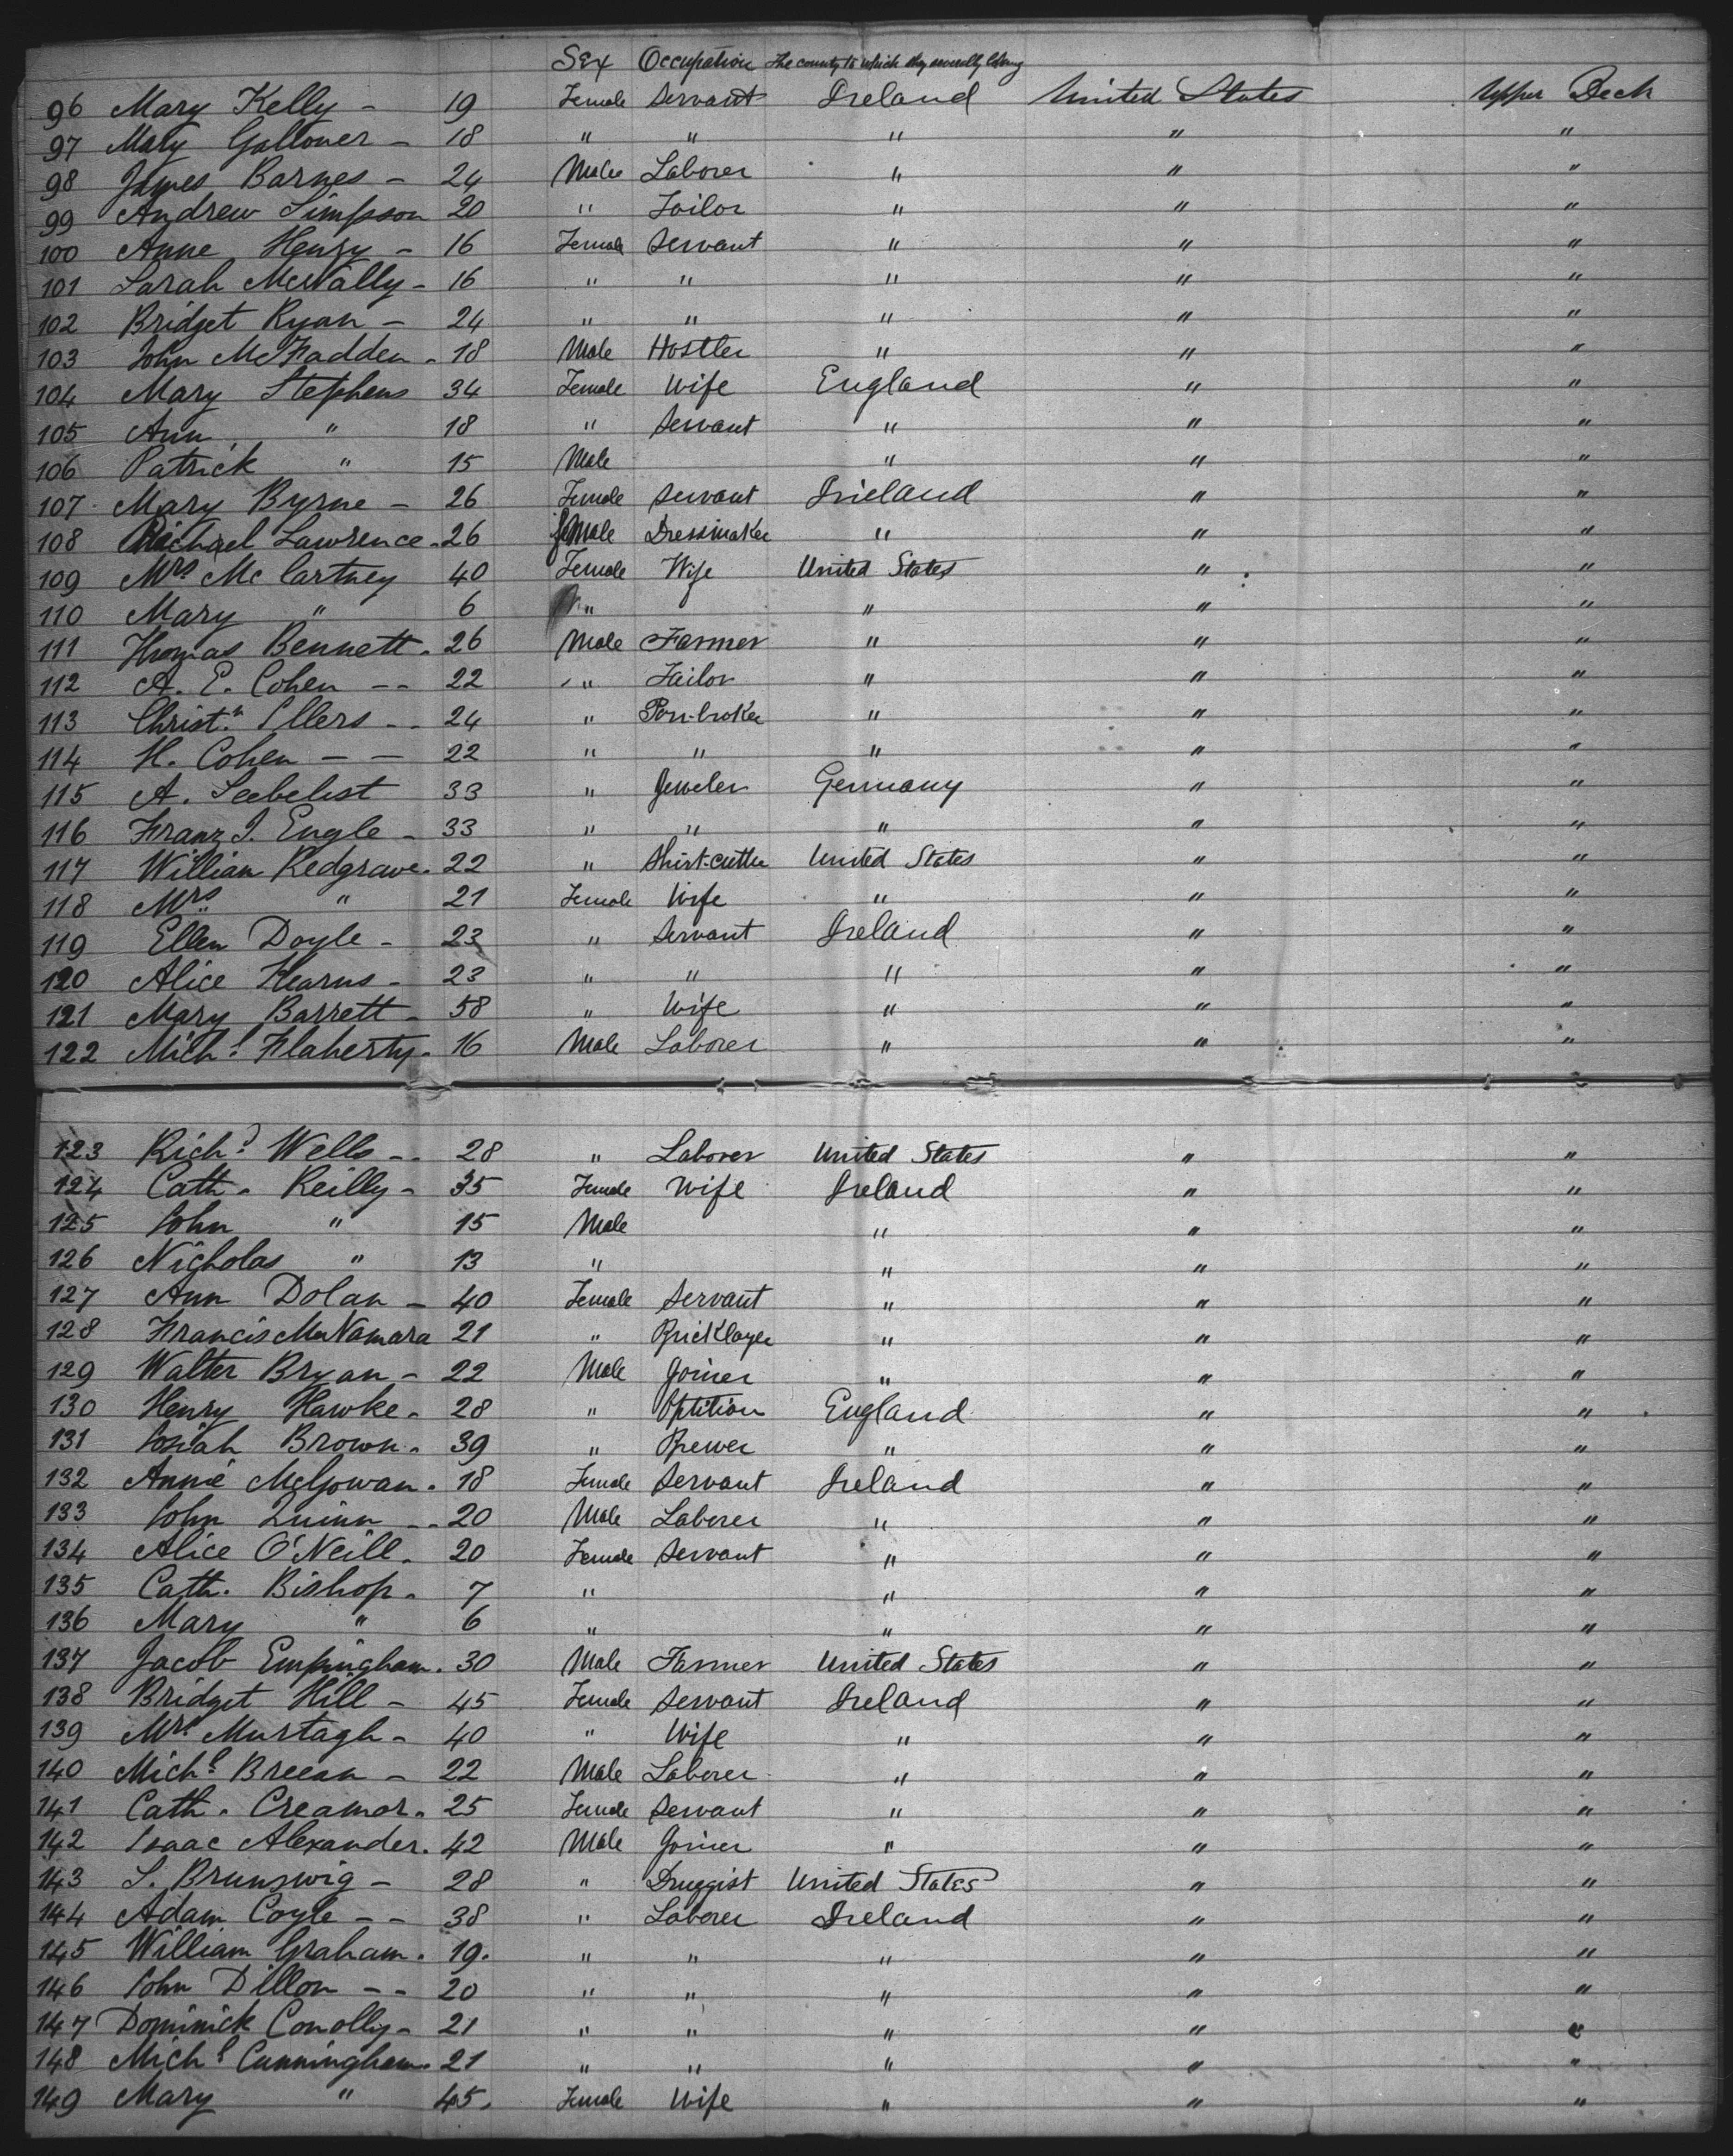 Sex Occupation The county to which they severally belong
96 Mary Kelly - 19 Female Servant Ireland United States Upper Deck
97 Mary Gallover - 18 " " " " "
98 James Barnes - 24 Male Laborer " " "
99 Andrew Simpson 20 " Tailor " " "
100 Anne Henry - 16 Female Servant " " "
101 Sarah McNally - 16 " " " " "
102 Bridget Ryan - 24 " " " " "
103 John McFadden - 18 Male Hostler " " "
104 Mary Stephens 34 Female Wife England " "
105 Ann " 18 " Servant " " "
106 Patrick " 15 Male " " "
107 Mary Byrne - 26 Female Servant Ireland " "
108 Lawrence - 26 feMale Dressmaker " " "
109 Mrs McCartney 40 Female Wife United States " "
110 Mary " 6 " " " "
111 Thomas Bennett - 26 Male Farmer " " "
112 A. E. Cohen -- 22 " Tailor " " "
113 Christn Ellers -- 24 " Pon-broker " " "
114 H. Cohen - - 22 " " " " "
115 A. Seebelist 33 " Jeweler Germany " "
116 Franz J. Engle - 33 " " " " "
117 William Redgrave - 22 " Shirt-cutter United States " "
118 Mrs " 21 Female Wife " " "
119 Ellen Doyle - 23 " Servant Ireland " "
120 Alice Kearns - 23 " " " " "
121 Mary Barrett - 58 " Wife " " "
122 Michl Flaherty - 16 Male Laborer " " "
123 Richd Wells -- 28 " Laborer United States " "
124 Cath. Reilly - 35 Female Wife Ireland " "
125 John " 15 Male " " "
126 Nicholas " 13 " " " "
127 Ann Dolan - 40 Female Servant " " "
128 Francis McNamara 21 " Bricklayer " " "
129 Walter Bryan - 22 Male Joiner " " "
130 Henry Hawke - 28 " Optition England " "
131 Josiah Brown - 39 " Brewer " " "
132 Annie McGowan - 18 Female Servant Ireland " "
133 John Quinn -- 20 Male Laborer " " "
134 Alice O'Neill - 20 Female Servant " " "
135 Cath. Bishop - 7 " " " "
136 Mary " 6 " " " "
137 Jacob Empingham - 30 Male Farmer United States " "
138 Bridget Hill - 45 Female Servant Ireland " "
139 Mrs Murtagh - 40 " Wife " " "
140 Michl Breean - 22 Male Laborer " " "
141 Cath. Creamor - 25 Female Servant " " "
142 Isaac Alexander - 42 Male Joiner " " "
143 S. Brunswig - 28 " Druggist United States " "
144 Adam Coyle -- 38 " Laborer Ireland " "
145 William Graham - 19. " " " " "
146 John Dillon -- 20 " " " " "
147 Dominick Conolly - 21 " " " " "
148 Michl Cunningham - 21 " " " " "
149 Mary " 45. Female Wife " " "